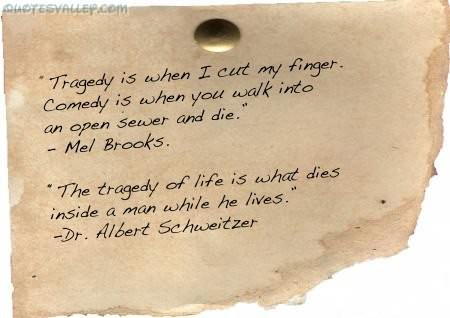 QUOTESVALLEY.COM
"Tragedy is when I cut my finger.
Comedy is when you walk into
an open sewer and die."
- Mel Brooks.
"The tragedy of life is what dies
inside a man while he lives."
-Dr. Albert Schweitzer